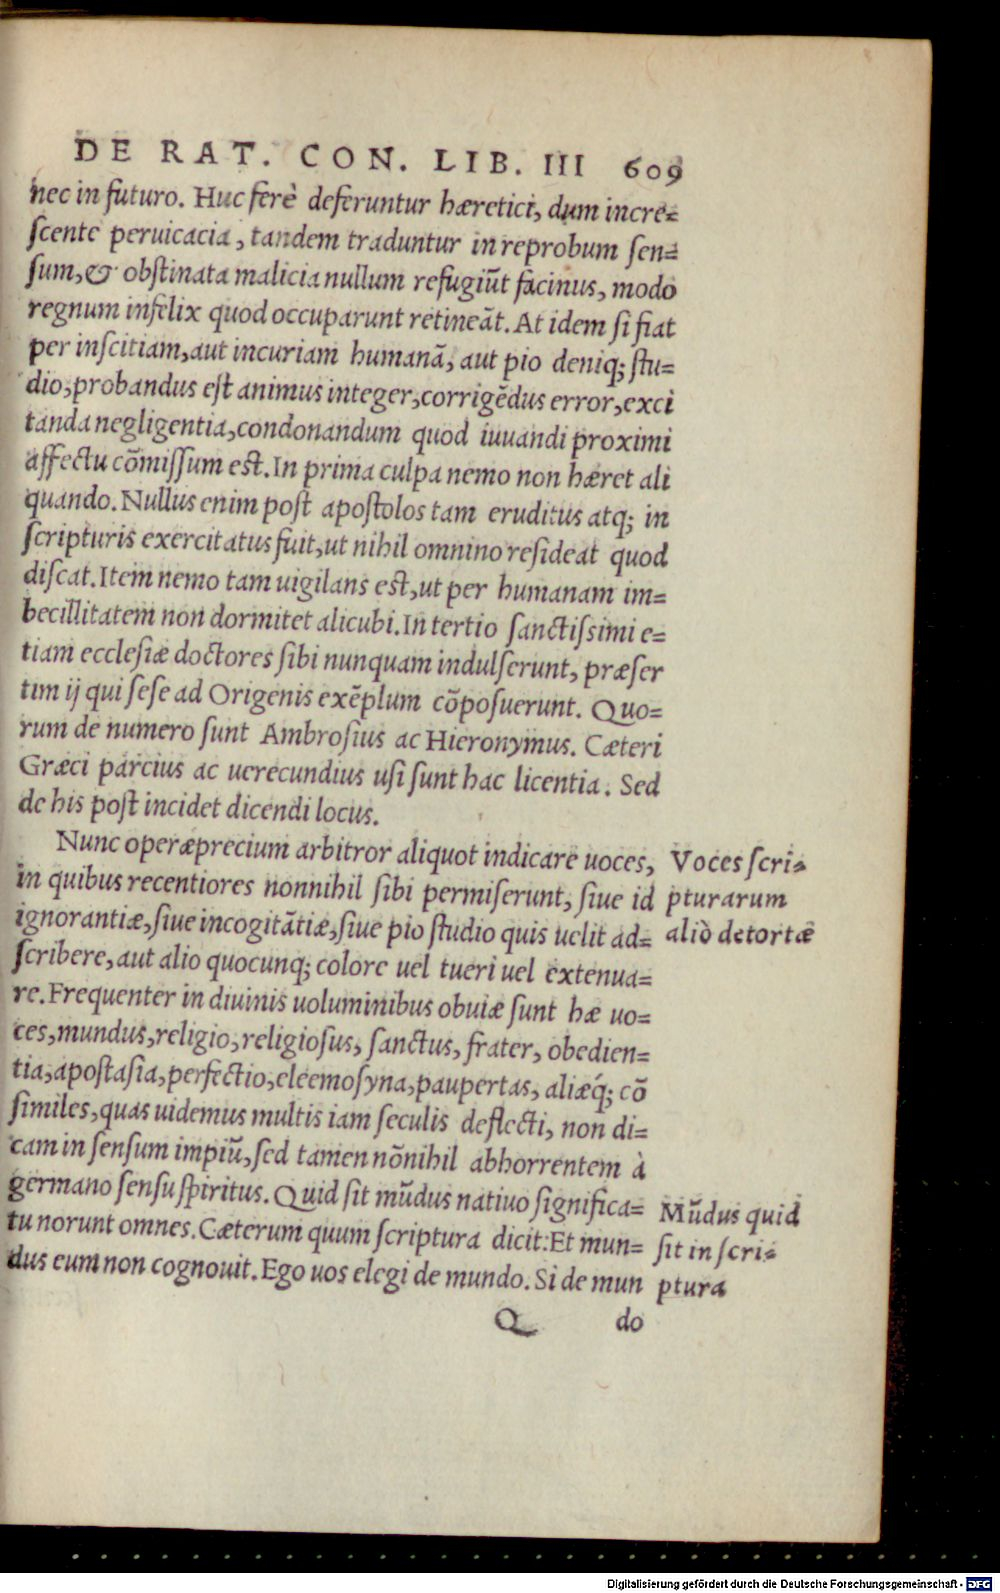 DE RAT. CON. LIB. III 609
nec in futuro. Huc ferè deferuntur hæretici, dum incre=
ſcente peruicacia, tandem traduntur in reprobum ſen=
ſum, & obſtinata malicia nullum refugiūt facinus, modo
regnum infelix quod occuparunt retineāt. At idem ſi fiat
per inſcitiam, aut incuriam humanā, aut pio deniq; ſtu=
dio, probandus eſt animus integer, corrigēdus error, exci
tanda negligentia, condonandum quod iuuandi proximi
affectu cōmiſſum eſt. In prima culpa nemo non hæret ali
quando. Nullus enim poſt apoſtolos tam eruditus atq; in
ſcripturis exercitatus fuit, ut nihil omnino reſideat quod
diſcat. Item nemo tam uigilans eſt, ut per humanam im=
becillitatem non dormitet alicubi. In tertio ſanctiſsimi e=
tiam eccleſiæ doctores ſibi nunquam indulſerunt, præſer
tim ij qui ſeſe ad Origenis exēplum cōpoſuerunt. Quo=
rum de numero ſunt Ambroſius ac Hieronymus. Cæteri
Græci parcius ac uerecundius uſi ſunt hac licentia. Sed
de his poſt incidet dicendi locus.
Nunc operæprecium arbitror aliquot indicare uoces,
in quibus recentiores nonnihil ſibi permiſerunt, ſiue id
ignorantiæ, ſiue incogitātiæ, ſiue pio ſtudio quis uelit ad=
ſcribere, aut alio quocunq; colore uel tueri uel extenua=
re. Frequenter in diuinis uoluminibus obuiæ ſunt hæ uo=
ces, mundus, religio, religioſus, ſanctus, frater, obedien=
tia, apoſtaſia, perfectio, eleemoſyna, paupertas, aliæq́; cō
ſimiles, quas uidemus multis iam ſeculis deflecti, non di=
cam in ſenſum impiū, ſed tamen nōnihil abhorrentem à
germano ſenſu ſpiritus. Quid ſit mūdus natiuo ſignifica=
tu norunt omnes. Cæterum quum ſcriptura dicit: Et mun=
dus eum non cognouit. Ego uos elegi de mundo. Si de mun
Q do
Voces ſcri=
pturarum
aliò detortæ
Mūdus quid
ſit in ſcri=
ptura
Digitalisierung gefördert durch die Deutsche Forschungsgemeinschaft - DFG